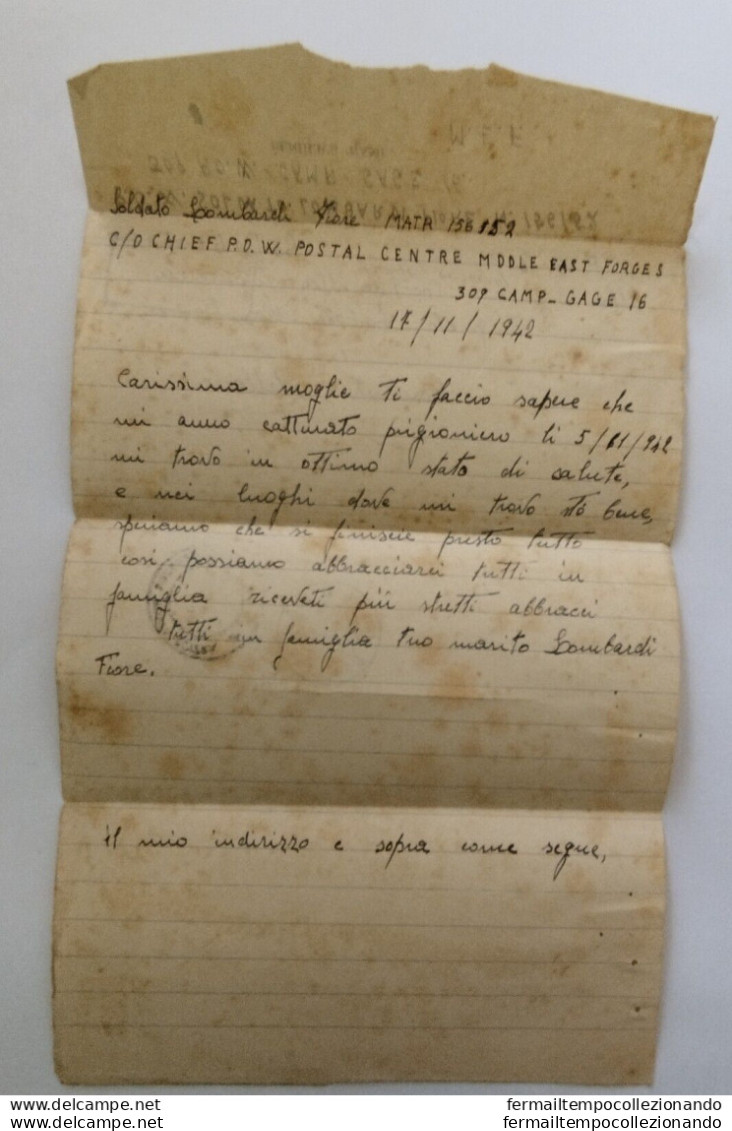 M.E.F.
Soldato Lombardi Fiore MATR 156152
C/O CHIEF P.O.W. POSTAL CENTRE MDDLE EAST FORGES
309 CAMP_ GAGE 16
17/11/1942
Carissima moglie ti faccio sapere che
mi anno catturato prigioniero li 5/11/942
mi trovo in ottimo stato di salute,
e nei luoghi dove mi trovo stò bene,
speriamo che si finiscie presto tutto
cosi possiamo abbracciarci tutti in
famiglia riceveti più stretti abbracci
tutti in famiglia tuo marito Lombardi
Fiore.
il mio indirizzo e sopra come segue,
fermailtempocollezionando fermailtempocollezionando
fermailtempocollezionando